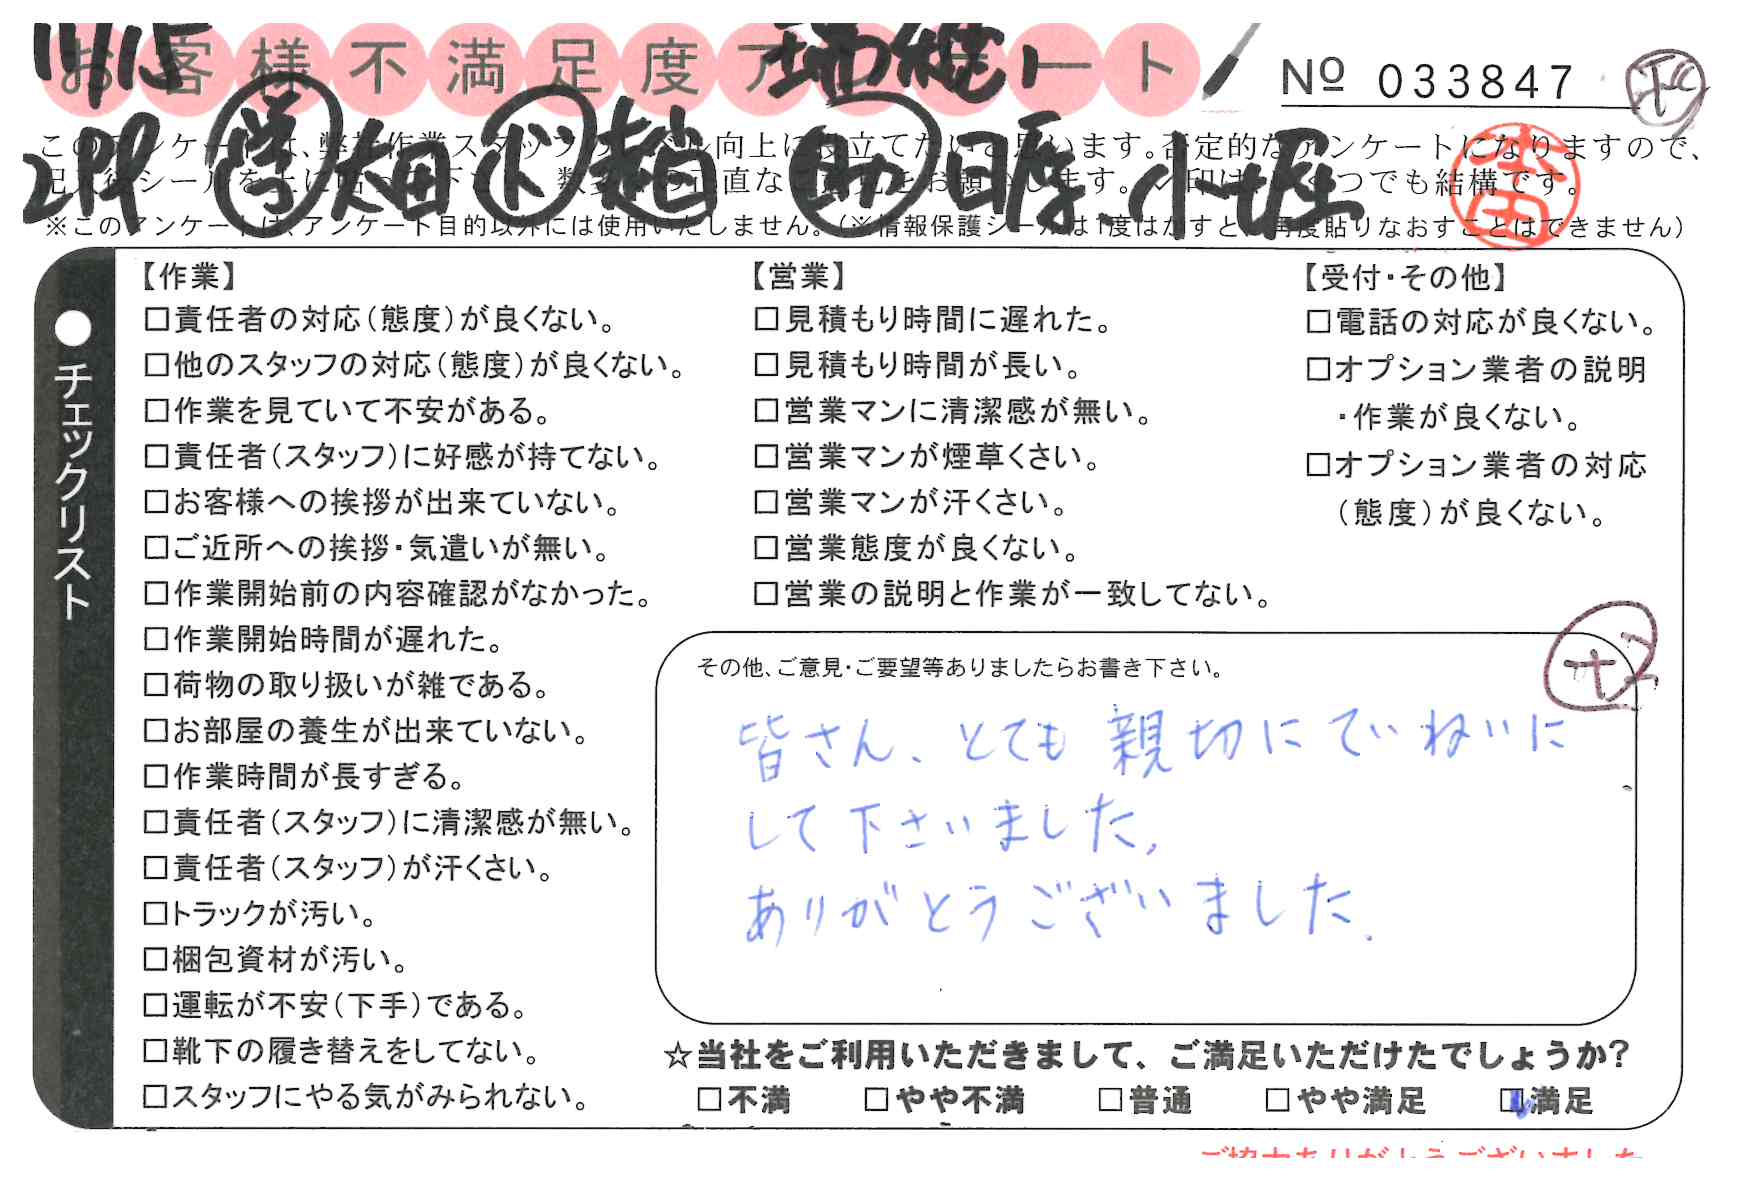 11/15
お客様不満足度アンケート
Nº 033847
このアンケートは、弊社作業スタッフのレベル向上に役立てたいと思います。否定的なアンケートになりますので、
記入後シールを上に貼って下さい。数多くの正直なご意見をお願いします。✓印はいくつでも結構です。
※このアンケートは、アンケート目的以外には使用いたしません。（※情報保護シールは1度はがすと、再度貼りなおすことはできません）
●チェックリスト
【作業】
□責任者の対応（態度）が良くない。
□他のスタッフの対応（態度）が良くない。
□作業を見ていて不安がある。
□責任者（スタッフ）に好感が持てない。
□お客様への挨拶が出来ていない。
□ご近所への挨拶・気遣いが無い。
□作業開始前の内容確認がなかった。
□作業開始時間が遅れた。
□荷物の取り扱いが雑である。
□お部屋の養生が出来ていない。
□作業時間が長すぎる。
□責任者（スタッフ）に清潔感が無い。
□責任者（スタッフ）が汗くさい。
□トラックが汚い。
□梱包資材が汚い。
□運転が不安（下手）である。
□靴下の履き替えをしてない。
□スタッフにやる気がみられない。
【営業】
□見積もり時間に遅れた。
□見積もり時間が長い。
□営業マンに清潔感が無い。
□営業マンが煙草くさい。
□営業マンが汗くさい。
□営業態度が良くない。
□営業の説明と作業が一致してない。
【受付・その他】
□電話の対応が良くない。
□オプション業者の説明
・作業が良くない。
□オプション業者の対応
（態度）が良くない。
その他、ご意見・ご要望等ありましたらお書き下さい。
皆さん、とても親切にていねいに
して下さいました。
ありがとうございました。
☆当社をご利用いただきまして、ご満足いただけたでしょうか?
□不満 □やや不満 □普通 □やや満足 ☑満足
ご協力ありがとうございました